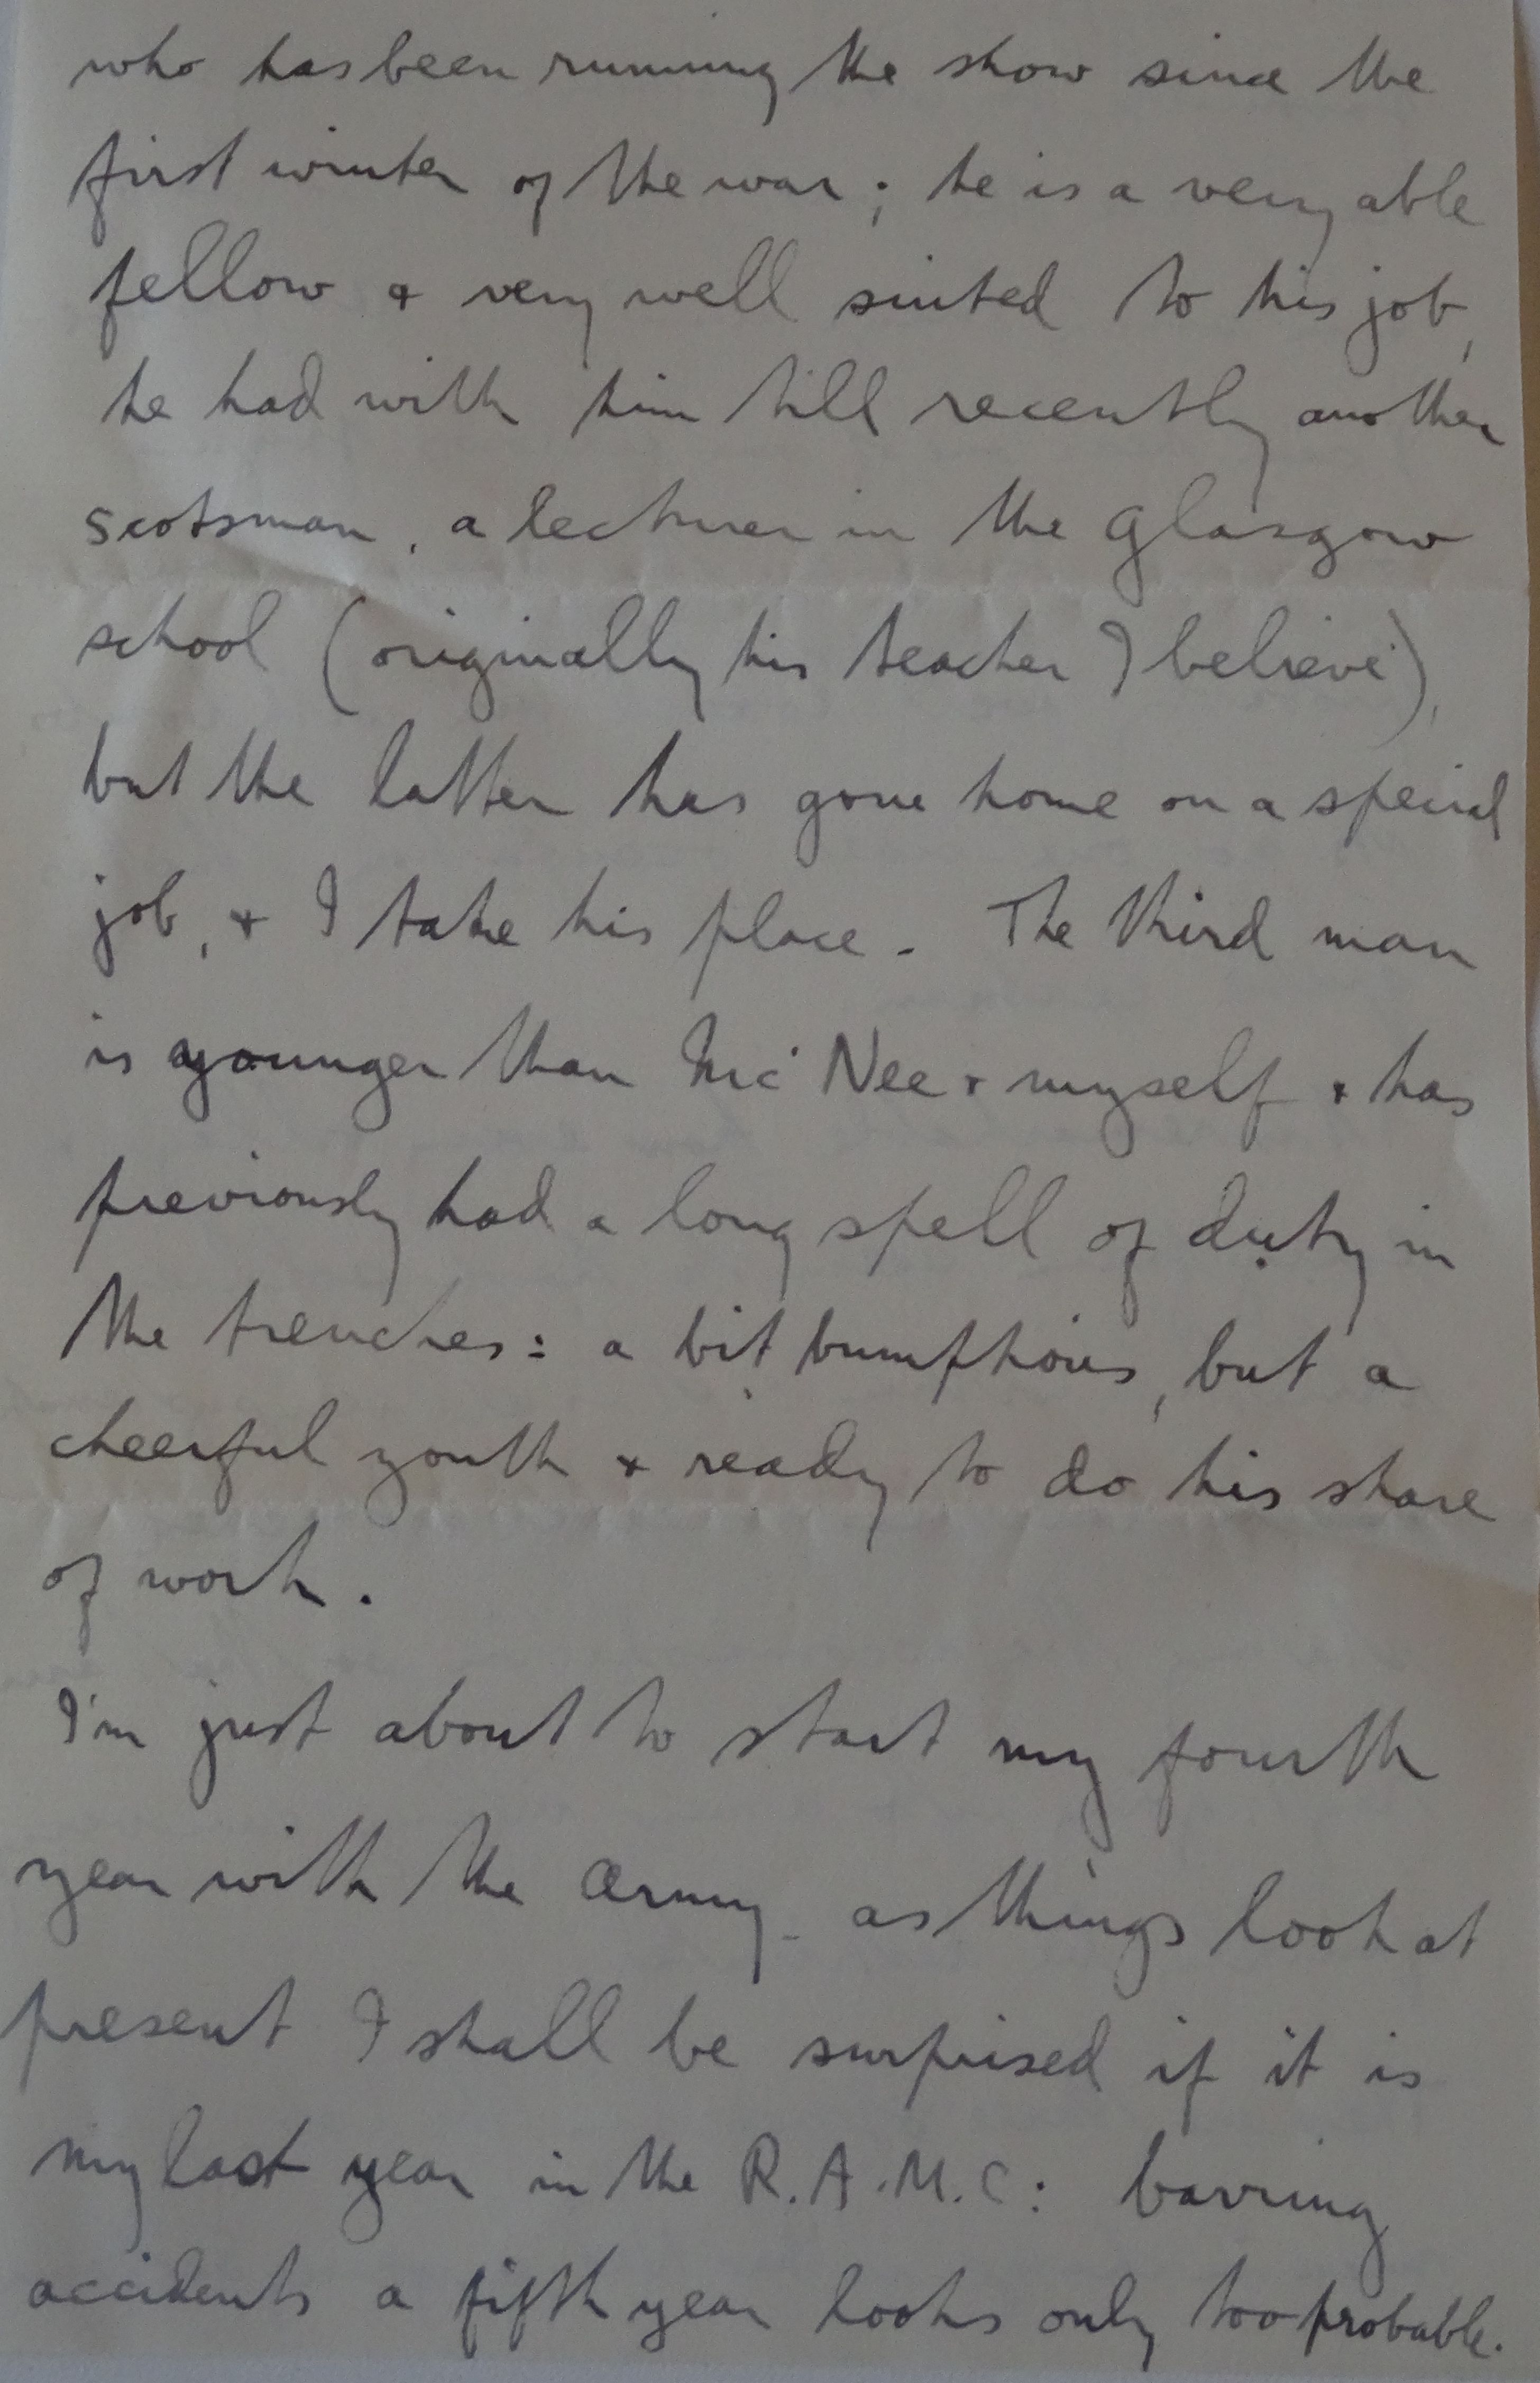 who has been running the show since the
first winter of the war; he is a very able
fellow & very well suited to his job,
he had with him till recently another
scotsman, a lecturer in the Glasgow
school (originally his teacher I believe),
but the latter has gone home on a special
job, & I take his place. The third man
is younger than Mc Nee & myself & has
previously had a long spell of duty in
the trenches: a bit bumptious, but a
cheerful youth & ready to do his share
of work.
I'm just about to start my fourth
year with the army - as things look at
present I shall be surprised if it is
my last year in the R.A.M.C: barring
accidents a fifth year looks only too probable.